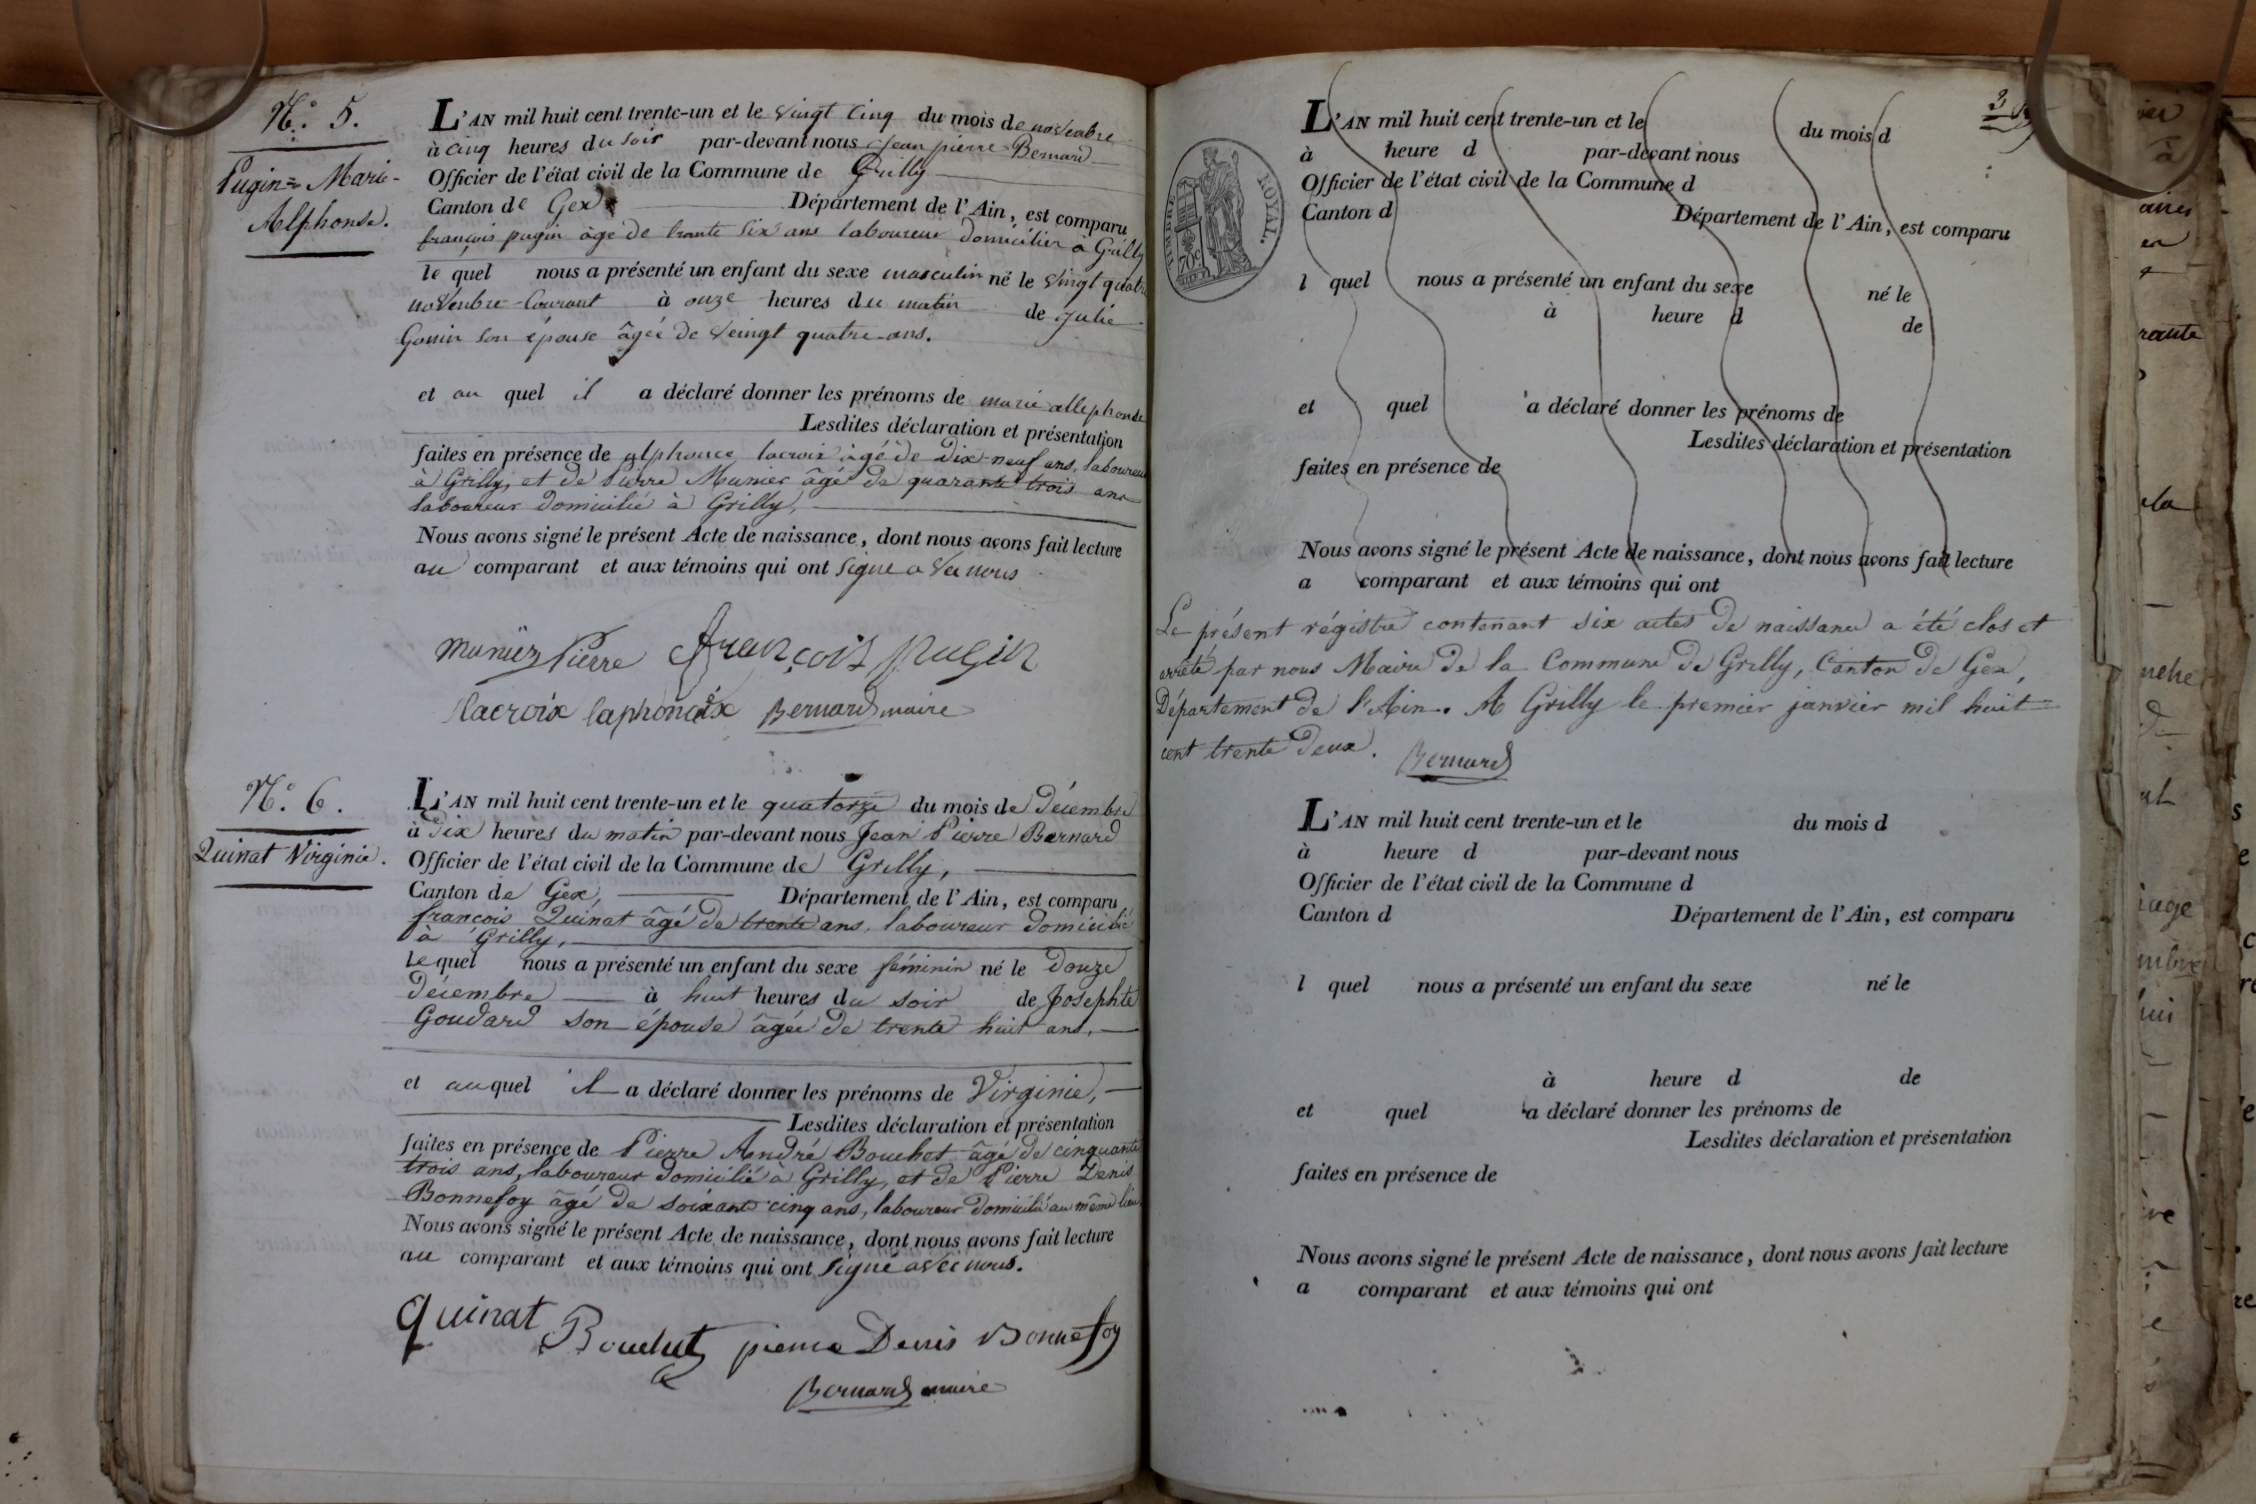 N.° 5.
Pugin = Marie-
Alphonse.
L'AN mil huit cent trente-un et le vingt cinq du mois de novenbre
à cinq heures du soir par-devant nous Jean pierre Bernard
Officier de l'état civil de la Commune de Grilly
Canton de Gex Département de l'Ain, est comparu
françois pugin âgé de trante six ans laboureur domicilier à Grilly
le quel nous a présenté un enfant du sexe masculin né le vingt quatre
novenbre Courant à onze heures du matin de Julie
Gonin son épouse âgée de veingt quatre ans.
et au quel il a déclaré donner les prénoms de marie allephonse
Lesdites déclaration et présentation
faites en présence de alphonce lacroix âgé de dix-neuf ans, laboureur
à Grilly, et de Pierre Munier âgé de quarante trois ans
laboureur domicilié à Grilly,
Nous avons signé le présent Acte de naissance, dont nous avons fait lecture
au comparant et aux témoins qui ont signé avec nous
munier Pierre françois pugin
lacroix laphonce Bernard maire
N.° 6.
Quinat Virginie.
L'AN mil huit cent trente-un et le quatorze du mois de Décembre
à Dix heures du matin par-devant nous Jean Pierre Bernard
Officier de l'état civil de la Commune de Grilly,
Canton de Gex, Département de l'Ain, est comparu
françois Quinat âgé de trente ans, laboureur domicilié
à Grilly,
le quel nous a présenté un enfant du sexe féminin né le Douze
Décembre à huit heures du soir de Josephte
Goudard son épouse âgée de trente huit ans,
et auquel il a déclaré donner les prénoms de Virginie,
Lesdites déclaration et présentation
faites en présence de Pierre André Bouchet âgé de cinquante
trois ans, laboureur domicilié à Grilly, et de Pierre Denis
Bonnefoy âgé de soixante cinq ans, laboureur domicilié au même lieu
Nous avons signé le présent Acte de naissance, dont nous avons fait lecture
au comparant et aux témoins qui ont signé avec nous.
Quinat Bouchet pierre Denis Bonnefoy
Bernard maire
TIMBRE ROYAL.
70c
L'AN mil huit cent trente-un et le du mois d
à heure d par-devant nous
Officier de l'état civil de la Commune d
Canton d Département de l'Ain, est comparu
l quel nous a présenté un enfant du sexe né le
à heure d de
et quel a déclaré donner les prénoms de
Lesdites déclaration et présentation
faites en présence de
Nous avons signé le présent Acte de naissance, dont nous avons fait lecture
a comparant et aux témoins qui ont
Le présent régistre contenant six actes de naissance a été clos et
arrêté par nous Maire de la Commune de Grilly, Canton de Gex,
Département de l'Ain. A Grilly le premier janvier mil huit
cent trente Deux. Bernard
L'AN mil huit cent trente-un et le du mois d
à heure d par-devant nous
Officier de l'état civil de la Commune d
Canton d Département de l'Ain, est comparu
l quel nous a présenté un enfant du sexe né le
à heure d de
et quel a déclaré donner les prénoms de
Lesdites déclaration et présentation
faites en présence de
Nous avons signé le présent Acte de naissance, dont nous avons fait lecture
a comparant et aux témoins qui ont